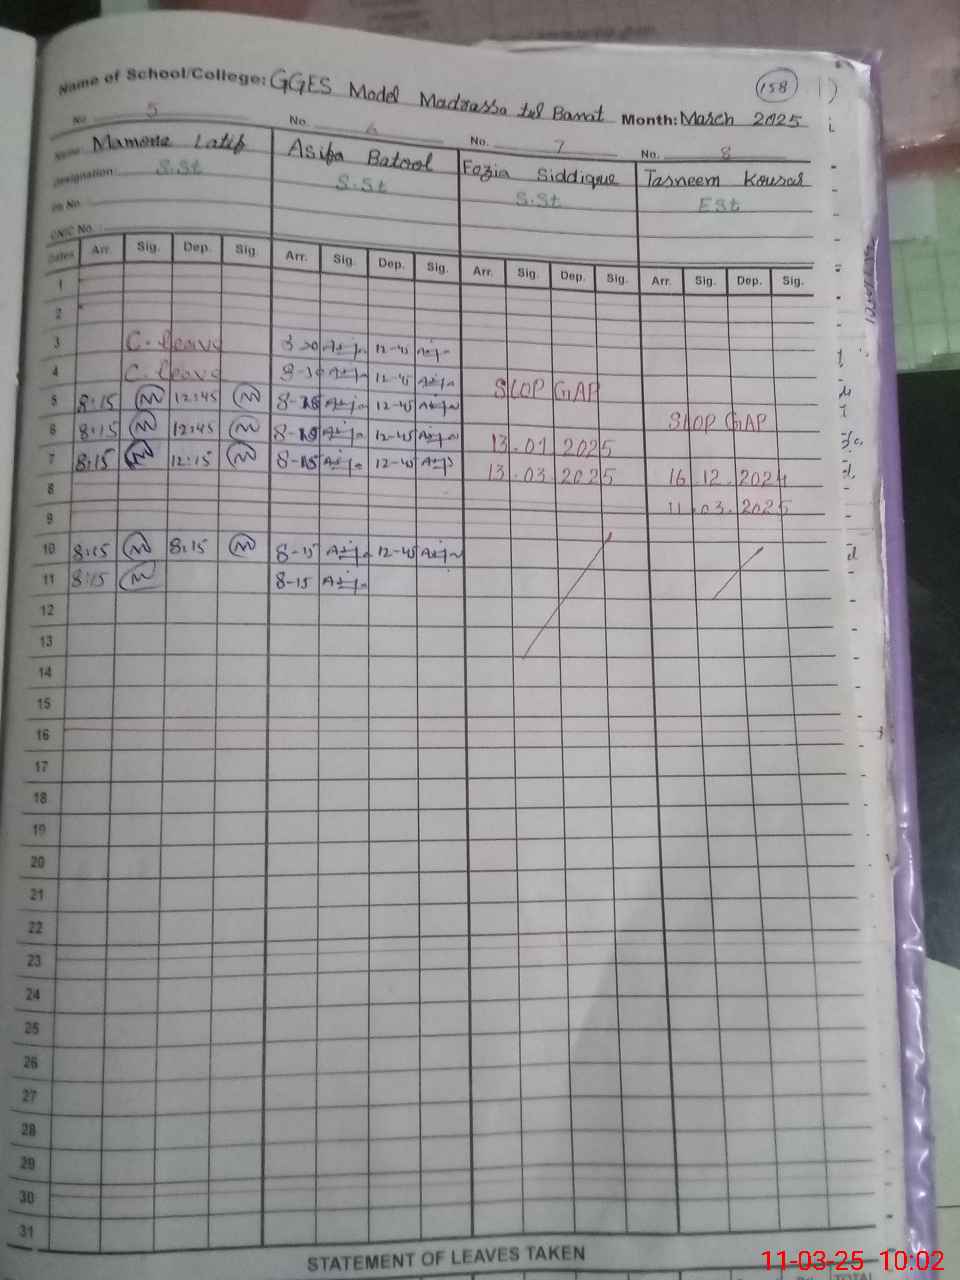 158
Name of School/College: GGES Model Madrassa tul Banat Month: March 2025
No. 5 No. 6 No. 7 No. 8
Name: Mamona Latif Asifa Batool Fozia Siddique Tasneem Kousar
Designation: S.St S.St S.St ESt
CNIC No.
Dates Arr. Sig. Dep. Sig. Arr. Sig. Dep. Sig. Arr. Sig. Dep. Sig. Arr. Sig. Dep. Sig.
1
2
3 C. leave 12-45
4 C. leave 12-45
STOP GAP
5 8:15 12:45 8-15 12-45
STOP GAP
6 8:15 12:45 8-15 12-45
13.01 2025
7 8:15 12:15 8-15 12-45
13.03.2025 16 12.2024
8
11.03.2025
9
10 8:15 8:15 8-15 12-45
11 8:15 8-15
12
13
14
15
16
17
18
19
20
21
22
23
24
25
26
27
28
29
30
31
STATEMENT OF LEAVES TAKEN
TOTAL
11-03-25 10:02